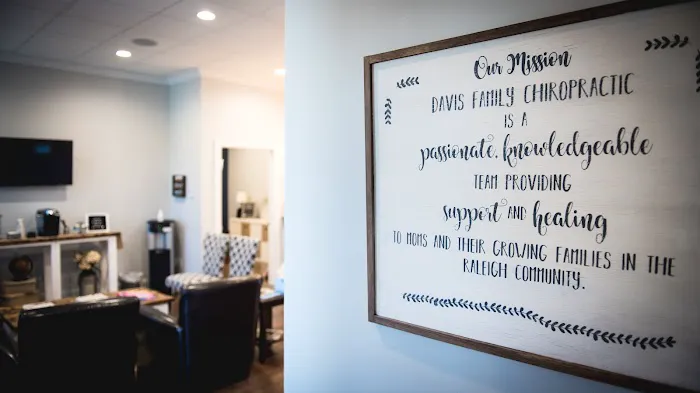 Our Mission
DAVIS FAMILY CHIROPRACTIC
IS A
passionate, knowledgeable
TEAM PROVIDING
support AND healing
TO MOMS AND THEIR GROWING FAMILIES IN THE
RALEIGH COMMUNITY.